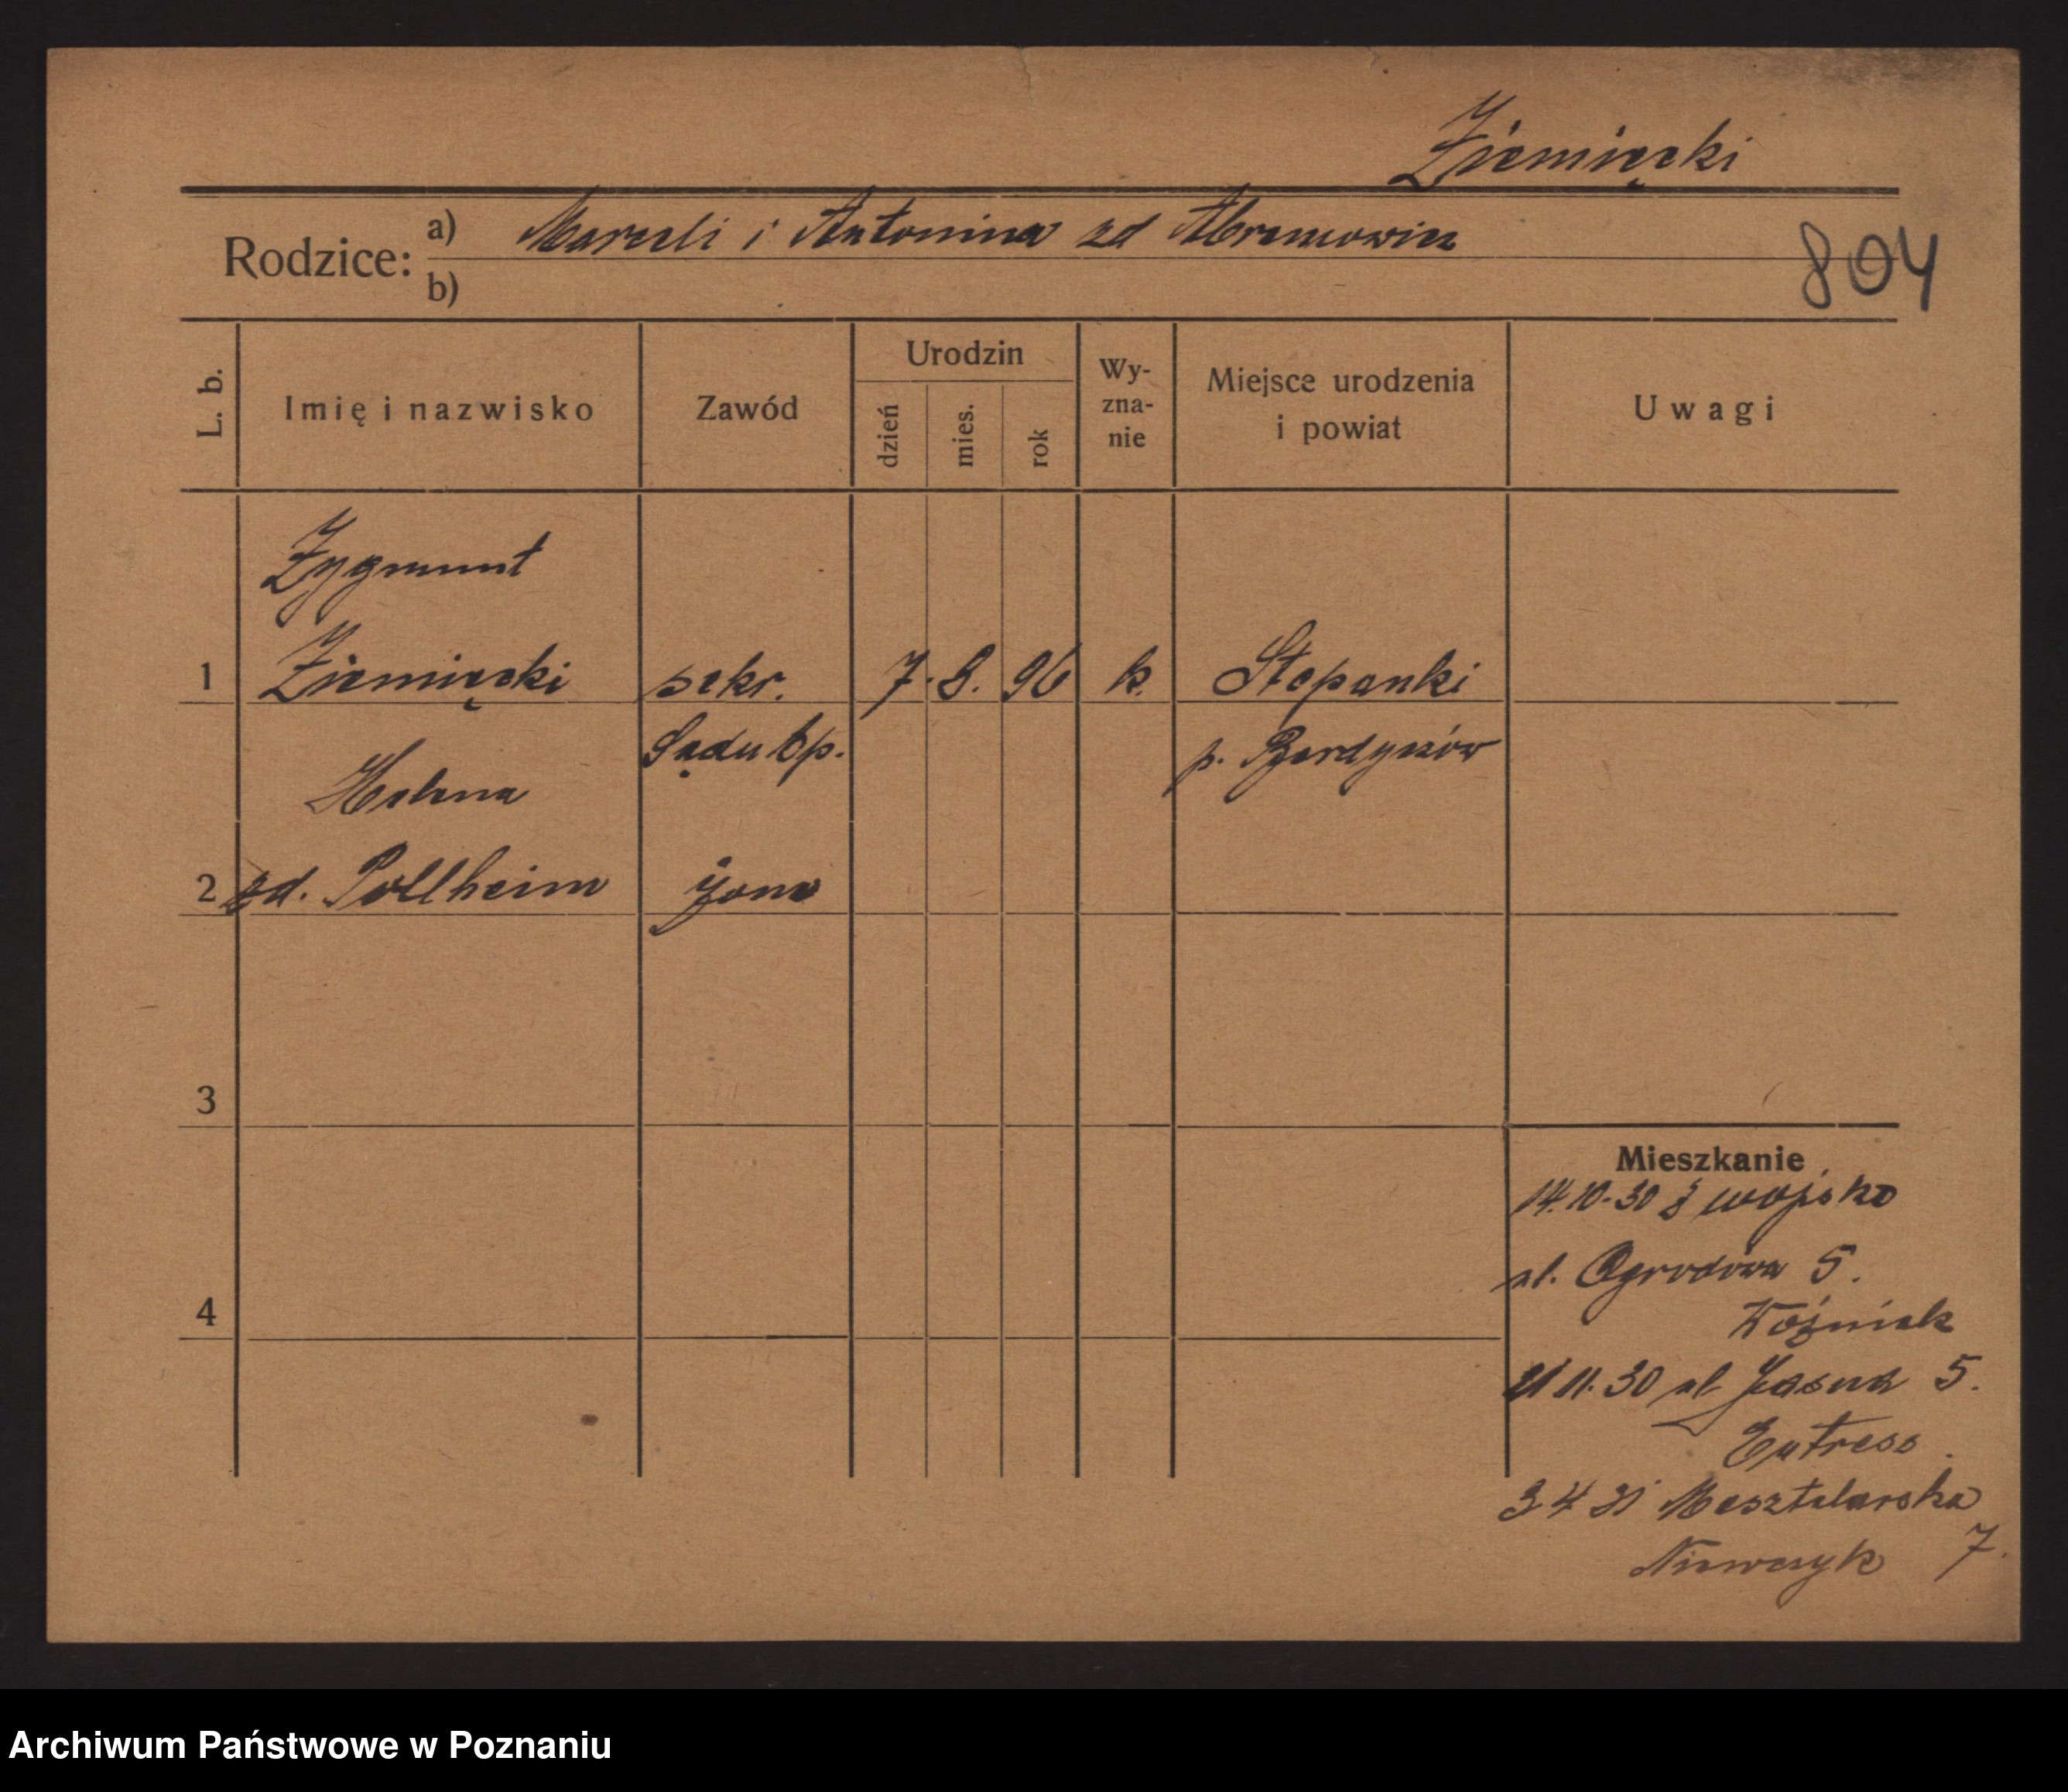 Ziemięcki
Rodzice: a) Marceli i Antonina zd Abramowicz
b)
804
L. b.
Imię i nazwisko
Zawód
Urodzin
dzień
mies.
rok
Wy-
zna-
nie
Miejsce urodzenia
i powiat
Uwagi
Zygmunt
1 Ziemięcki sekr. 7. 8. 96 k. Stepanki
Sądu Ap. p. Berdyczów
Helena
2 zd. Pollheim żona
3
Mieszkanie
14.10.30 z wojsko
ul. Ogrodowa 5.
4
Woźniak
11.30 ul Jasna 5.
3 4 31 Masztalarska
7.
Niewczyk
Archiwum Państwowe w Poznaniu